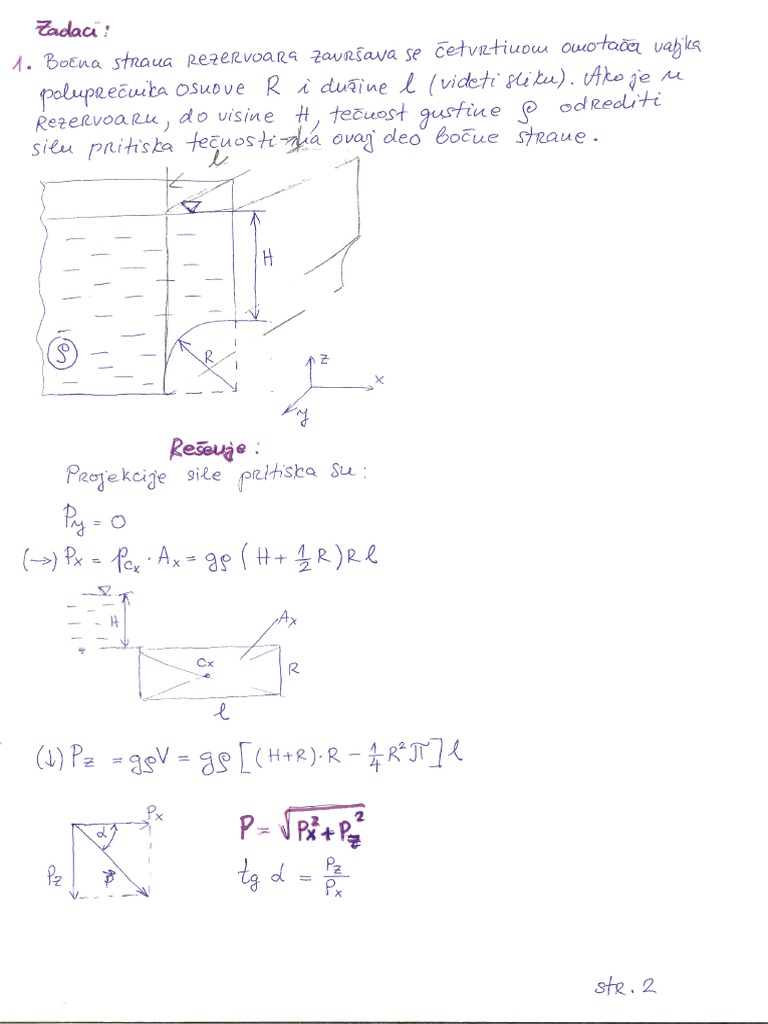 Zadaci:
1. Bočna strana rezervoara završava se četvrtinom omotača valjka
poluprečnika osnove R i dužine l (videti sliku). Ako je u
rezervoaru, do visine H, tečnost gustine ρ odrediti
silu pritiska tečnosti na ovaj deo bočne strane.
l
H
ρ
R
z
x
y
Rešenje:
Projekcije sile pritiska su:
Py = 0
(→) Px = pCx · Ax = gρ (H + 1/2 R) R l
H
Ax
Cx
R
l
(↓) Pz = gρV = gρ [(H+R)·R − 1/4 R²π] l
Px
α
Pz
P
P = √(Px² + Pz²)
tg α = Pz/Px
str. 2